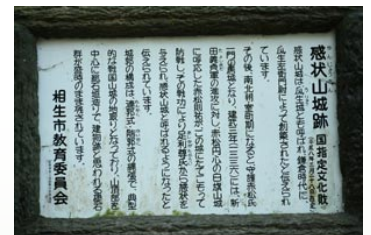 感状山城跡 国指定文化財
感状山城は瓜生城とも呼ばれ、鎌倉時代に
瓜生左衛門尉によって創築されたと伝えられ
ています。
その後、南北朝・室町期になると守護赤松氏
一門の属城となり、建武三年(一三三六)には、新
田義貞軍の進攻に対し、赤松円心の白旗山城
に呼応した赤松則祐がこの城にたてこもって
防戦し、その戦功により足利尊氏から感状を
与えられ、感状山城と呼ばれるようになったと
伝えられています。
城郭の構成は、連郭式・階郭式の縄張で、典型
的な戦国山城の地取りとなっており、山頂部を
中心に総石垣造りで、建物跡と思われる礎石
群が当時のまま残されています。
相生市教育委員会